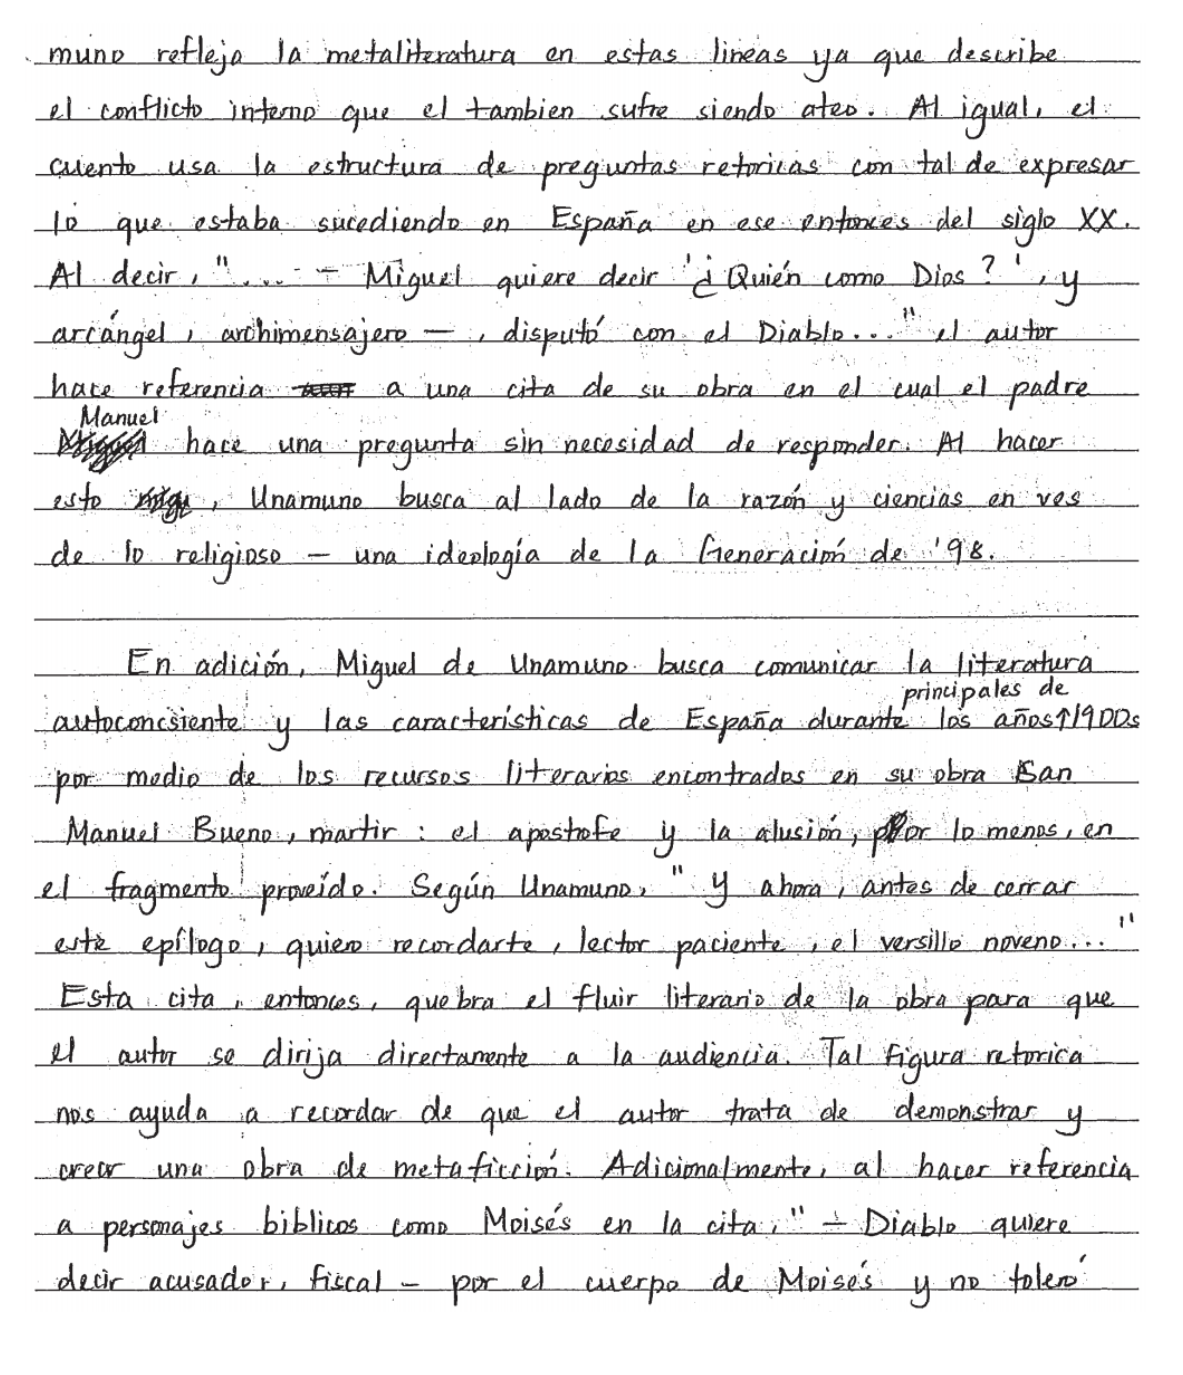 muno refleja la metaliteratura en estas lineas ya que describe
el conflicto interno que el tambien sufre siendo ateo. Al igual, el
cuento usa la estructura de preguntas retoricas con tal de expresar
lo que estaba sucediendo en España en ese entonces del siglo XX.
Al decir, "... — Miguel quiere decir '¿Quién como Dios?', y
arcángel, archimensajero —, disputó con el Diablo..." el autor
hace referencia a una cita de su obra en el cual el padre
Manuel
hace una pregunta sin necesidad de responder. Al hacer
esto , Unamuno busca al lado de la razón y ciencias en ves
de lo religioso — una ideología de la Generación de '98.
En adición, Miguel de Unamuno busca comunicar la literatura
principales de
autoconcsiente y las características de España durante los años↑1900s
por medio de los recursos literarios encontrados en su obra San
Manuel Bueno, martir: el apostofe y la alusión, por lo menos, en
el fragmento proveído. Según Unamuno, "Y ahora, antes de cerrar
este epílogo, quiero recordarte, lector paciente, el versillo noveno..."
Esta cita, entonces, quebra el fluir literario de la obra para que
el autor se dirija directamente a la audiencia. Tal figura retorica
nos ayuda a recordar de que el autor trata de demonstrar y
crear una obra de metaficción. Adicionalmente, al hacer referencia
a personajes biblicos como Moisés en la cita, "— Diablo quiere
decir acusador, fiscal — por el cuerpo de Moisés y no toleró